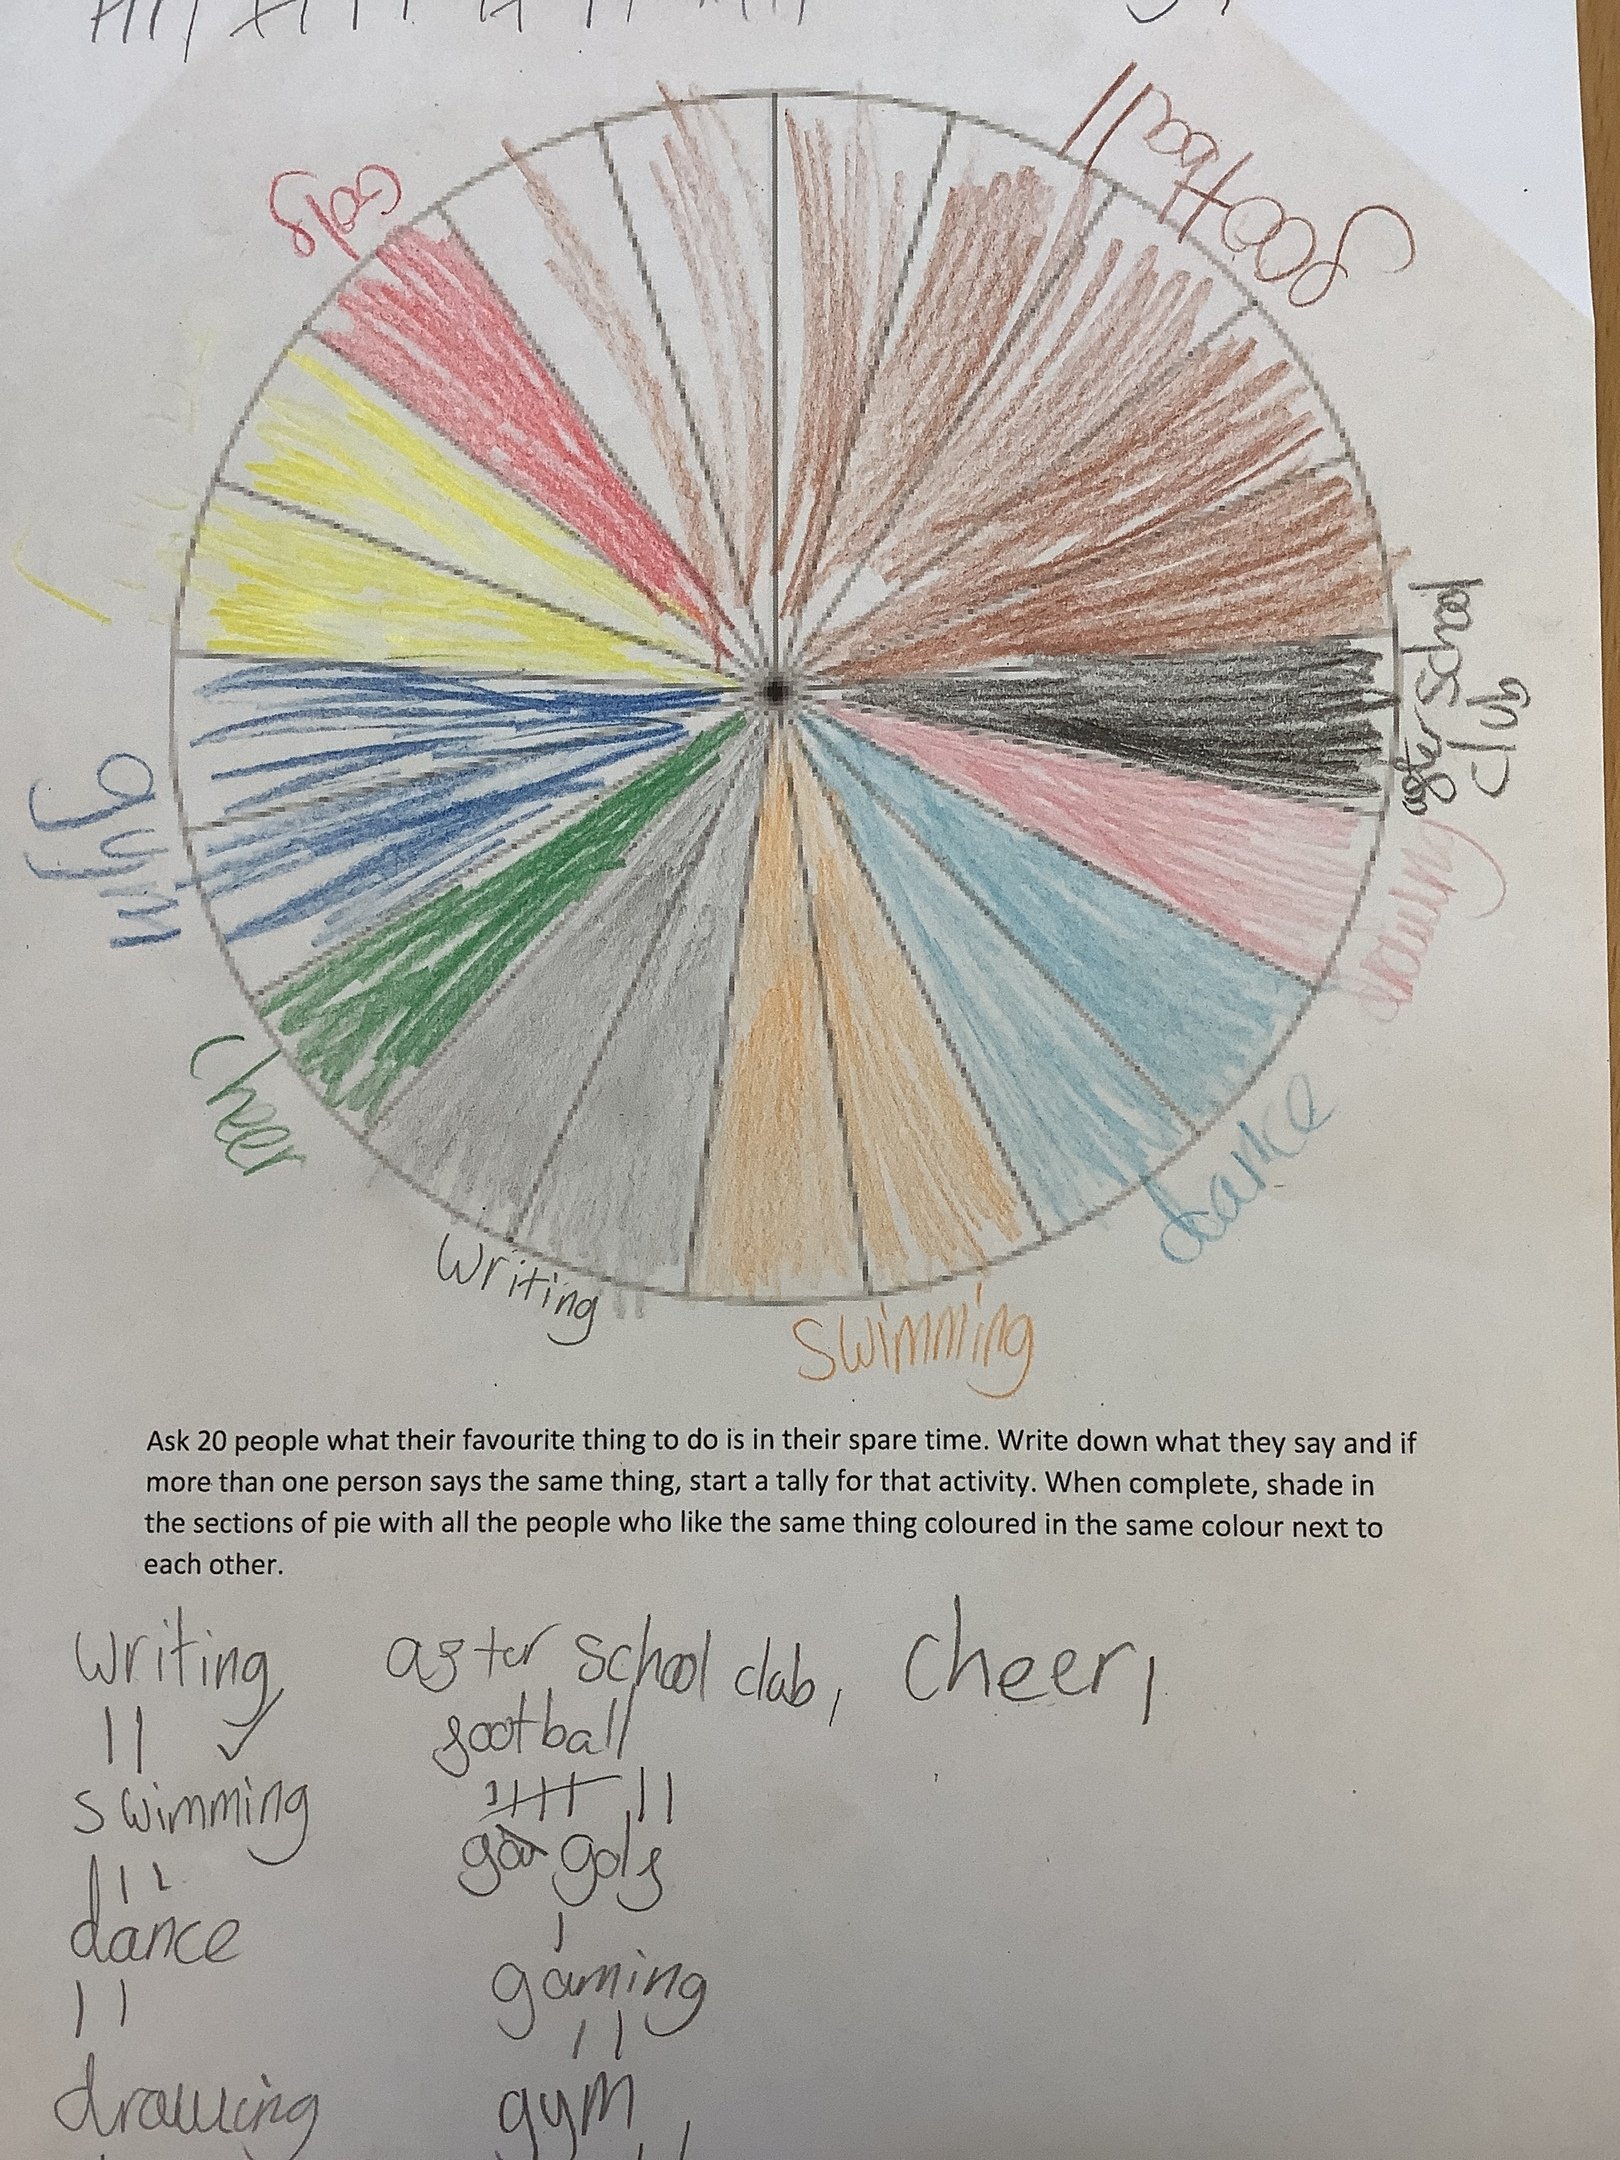 football
golf
after school club
drawing
gym
dance
cheer
writing
swimming
Ask 20 people what their favourite thing to do is in their spare time. Write down what they say and if
more than one person says the same thing, start a tally for that activity. When complete, shade in
the sections of pie with all the people who like the same thing coloured in the same colour next to
each other.
writing, after school club, cheer,
football
swimming
golf
dance
gaming
drawing gym